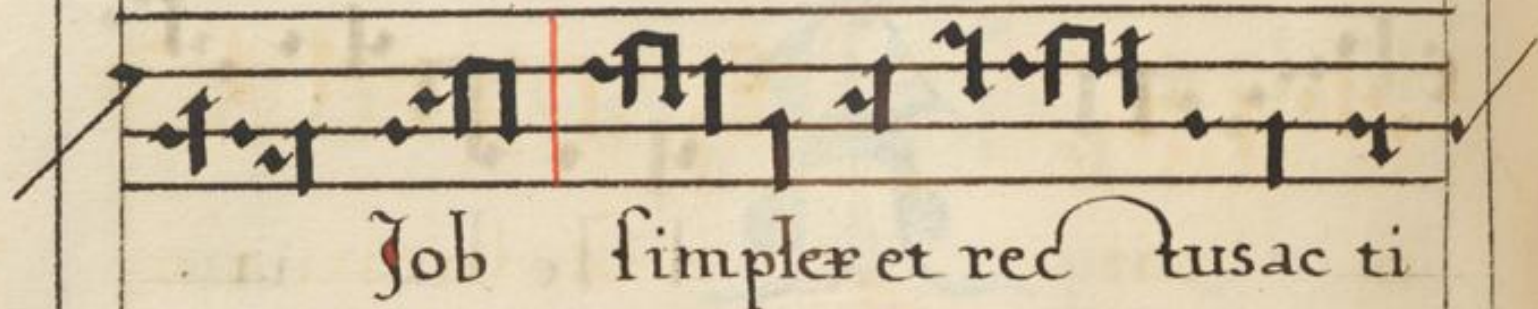 Job ſimplex et rectus ac ti